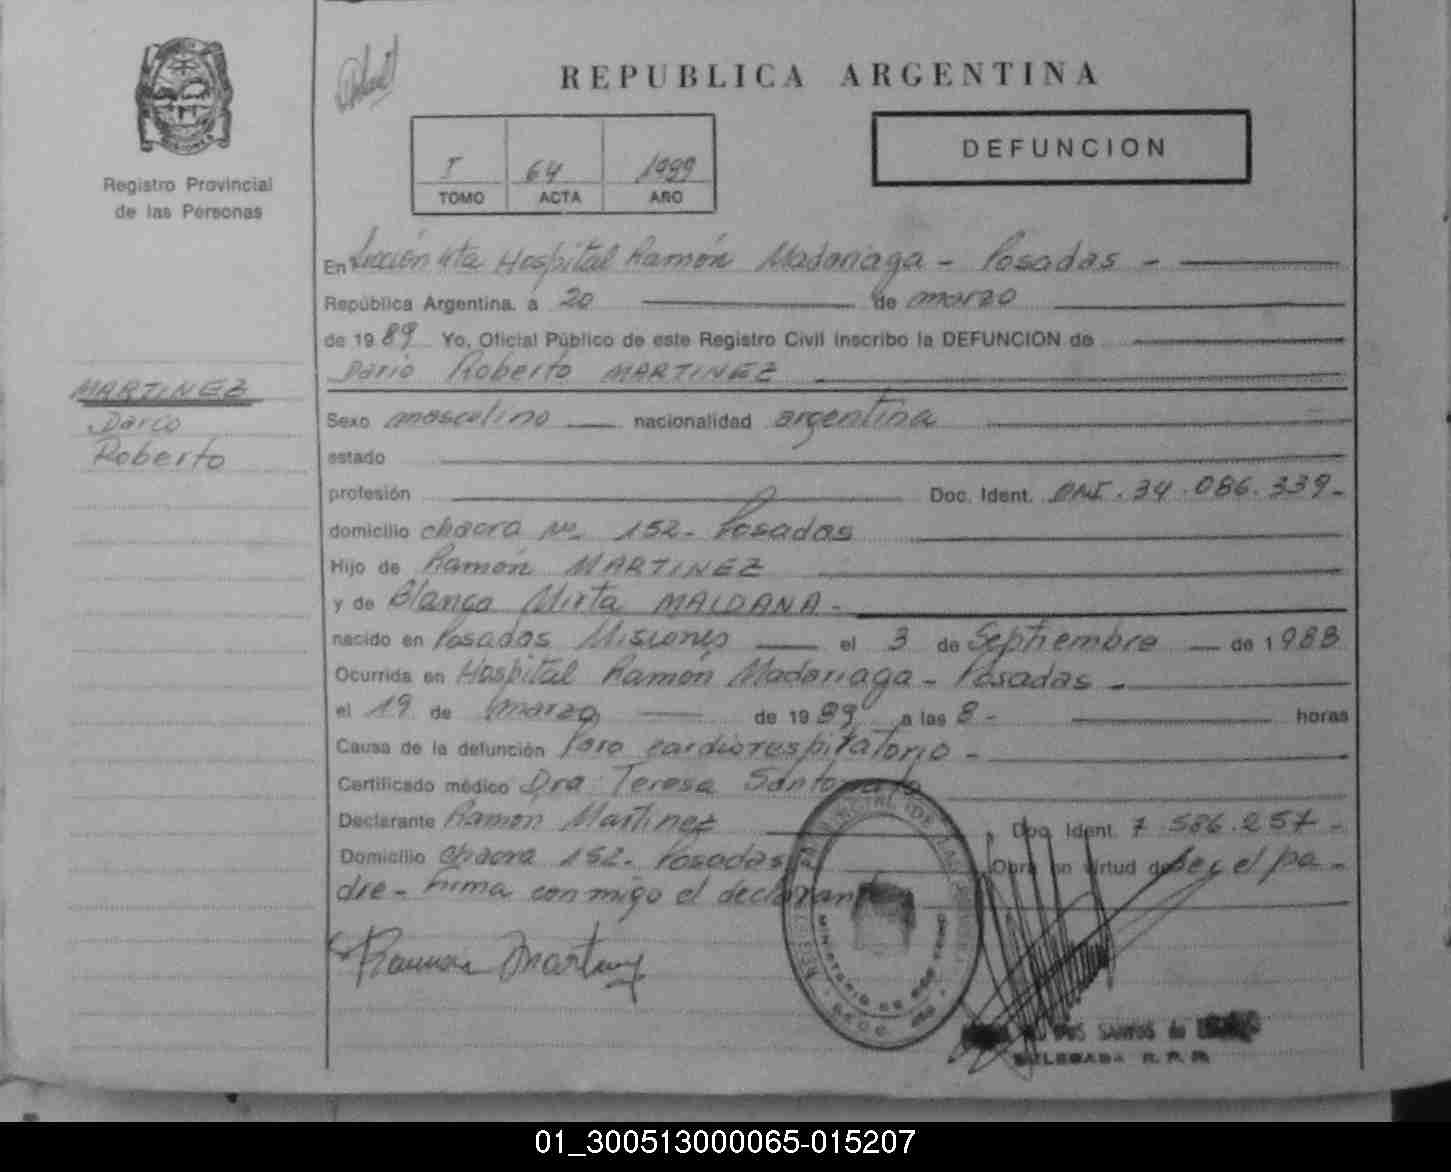 REPUBLICA ARGENTINA
DEFUNCION
I 64 1989
TOMO ACTA AÑO
Registro Provincial
de las Personas
MARTINEZ
Dario
Roberto
En Sección 4ta Hospital Ramón Madariaga - Posadas -
República Argentina, a 20 de marzo
de 1989 Yo, Oficial Público de este Registro Civil inscribo la DEFUNCION de
Dario Roberto MARTINEZ
Sexo masculino nacionalidad argentina
estado
profesión Doc. Ident. DNI. 34.086.339-
domicilio chacra Nº 152- Posadas
Hijo de Ramón MARTINEZ
y de Blanca Mirta MALDANA-
nacido en Posadas Misiones el 3 de Septiembre de 1988
Ocurrida en Hospital Ramón Madariaga - Posadas -
el 19 de marzo de 1989 a las 8- horas
Causa de la defunción Paro cardiorespiratorio -
Certificado médico Dra. Teresa
Declarante Ramon Martinez Doc. Ident. 7.586.257-
Domicilio chacra 152- Posadas Obra en virtud de ser el pa-
dre- Firma conmigo el declarante
Ramon Martinez
DOS SANTOS de
DELEGADA R.P.P.
01_300513000065-015207